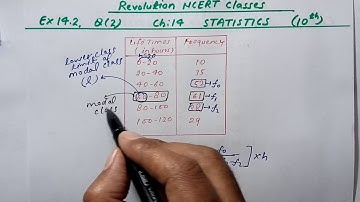 Revolution NCERT Classes
Ex 14.2, Q(2) Ch:14 STATISTICS (10th)
Life Times (in hours) Frequency
0-20 10
20-40 35
40-60 52 → f₀
60-80 61 → f₁
80-100 38 → f₂
100-120 29
lower class limit of modal class (l)
modal class
f₀
f₂ ] × h